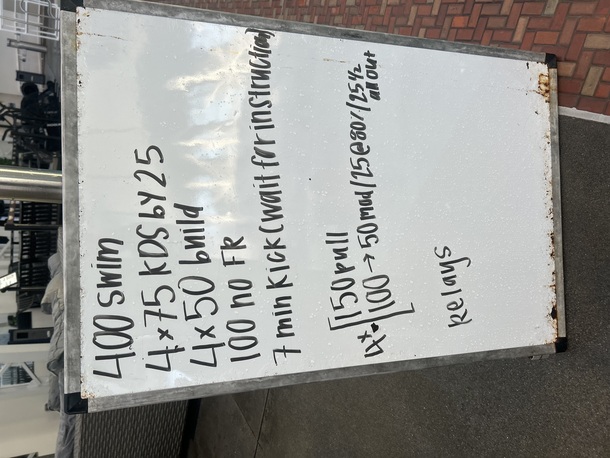 400 swim
4x75 KDS by 25
4x50 build
100 no FR
7 min kick (wait for instruction)
4x [150 pull
100 → 50 mod/25@80%/25 1/2 all out
Relays